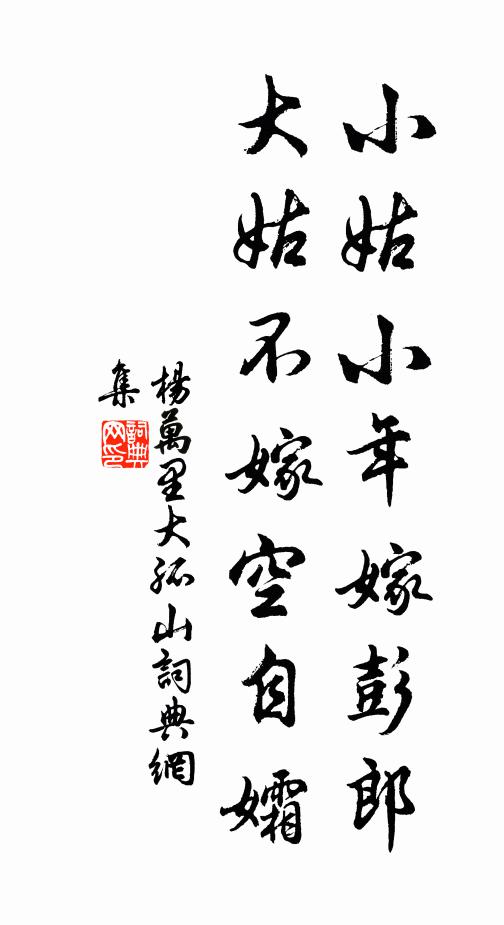 小姑小年嫁彭郎
大姑不嫁空自孀
楊萬里大孤山詞典網
集
詞典网印